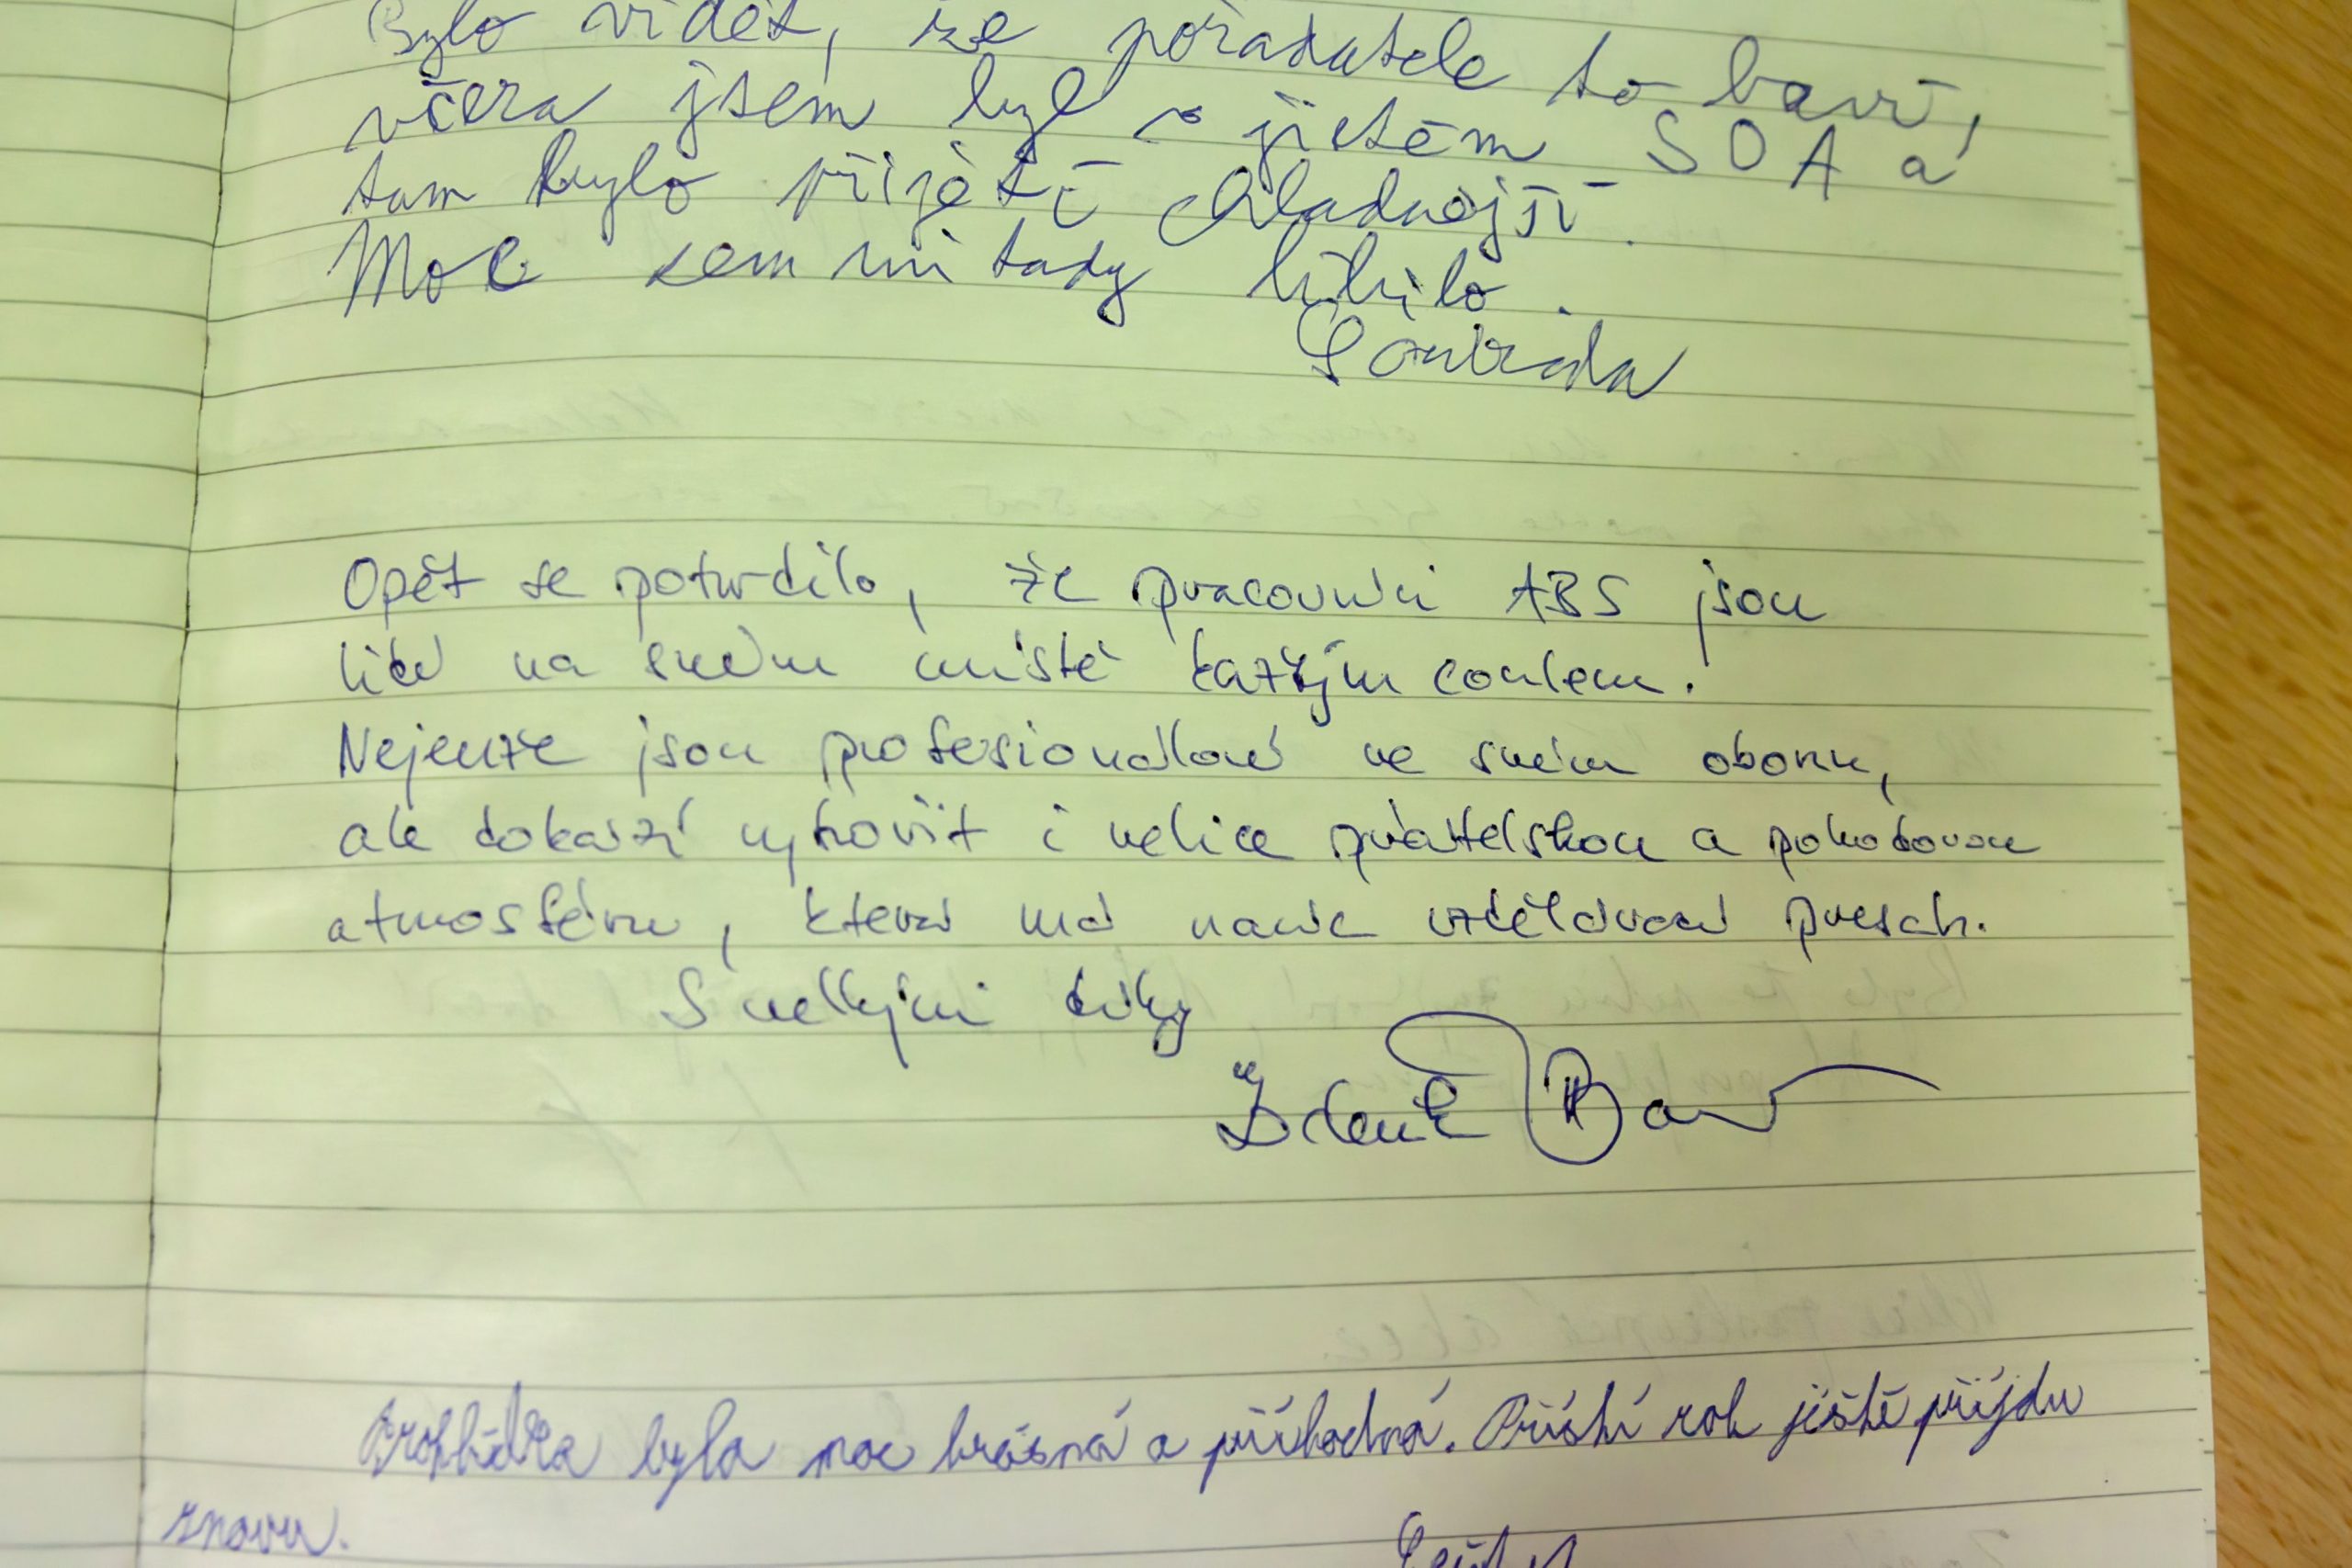 Bylo vidět, že pořadatele to baví,
včera jsem byl v jistém SOA a
tam bylo přijetí chladnější.
Moc sem mi tady líbilo.
Soukada
Opět se potvrdilo, že pracovníci ABS jsou
lidé na svém místě každým coulem.
Nejenže jsou profesionálové ve svém oboru,
ale dokáží vytvořit i velice přátelskou a pohodovou
atmosféru, která má navíc vzdělávací přesah.
S velkými díky
Zdeněk
Prohlídka byla moc krásná a příhodná. Příští rok jistě příjdu
znovu.